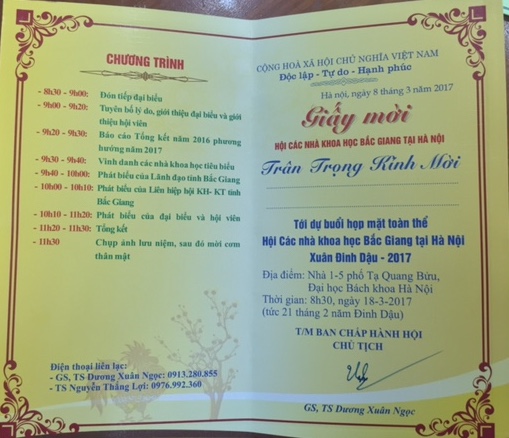 CHƯƠNG TRÌNH
- 8h30 - 9h00: Đón tiếp đại biểu
- 9h00 - 9h20: Tuyên bố lý do, giới thiệu đại biểu và giới
thiệu hội viên
- 9h20 - 9h30: Báo cáo Tổng kết năm 2016 phương
hướng năm 2017
- 9h30 - 9h40: Vinh danh các nhà khoa học tiêu biểu
- 9h40 - 10h00: Phát biểu của Lãnh đạo tỉnh Bắc Giang
- 10h00 - 10h10: Phát biểu của Liên hiệp hội KH- KT tỉnh
Bắc Giang
- 10h10 - 11h20: Phát biểu của đại biểu và hội viên
- 11h20 - 11h30: Tổng kết
- 11h30 Chụp ảnh lưu niệm, sau đó mời cơm
thân mật
Điện thoại liên lạc:
- GS, TS Dương Xuân Ngọc: 0913.280.855
- TS Nguyễn Thắng Lợi: 0976.992.360
CỘNG HOÀ XÃ HỘI CHỦ NGHĨA VIỆT NAM
Độc lập - Tự do - Hạnh phúc
Hà nội, ngày 8 tháng 3 năm 2017
Giấy mời
HỘI CÁC NHÀ KHOA HỌC BẮC GIANG TẠI HÀ NỘI
Trân Trọng Kính Mời
Tới dự buổi họp mặt toàn thể
Hội Các nhà khoa học Bắc Giang tại Hà Nội
Xuân Đinh Dậu - 2017
Địa điểm: Nhà 1-5 phố Tạ Quang Bửu,
Đại học Bách khoa Hà Nội
Thời gian: 8h30, ngày 18-3-2017
(tức 21 tháng 2 năm Đinh Dậu)
T/M BAN CHẤP HÀNH HỘI
CHỦ TỊCH
GS, TS Dương Xuân Ngọc